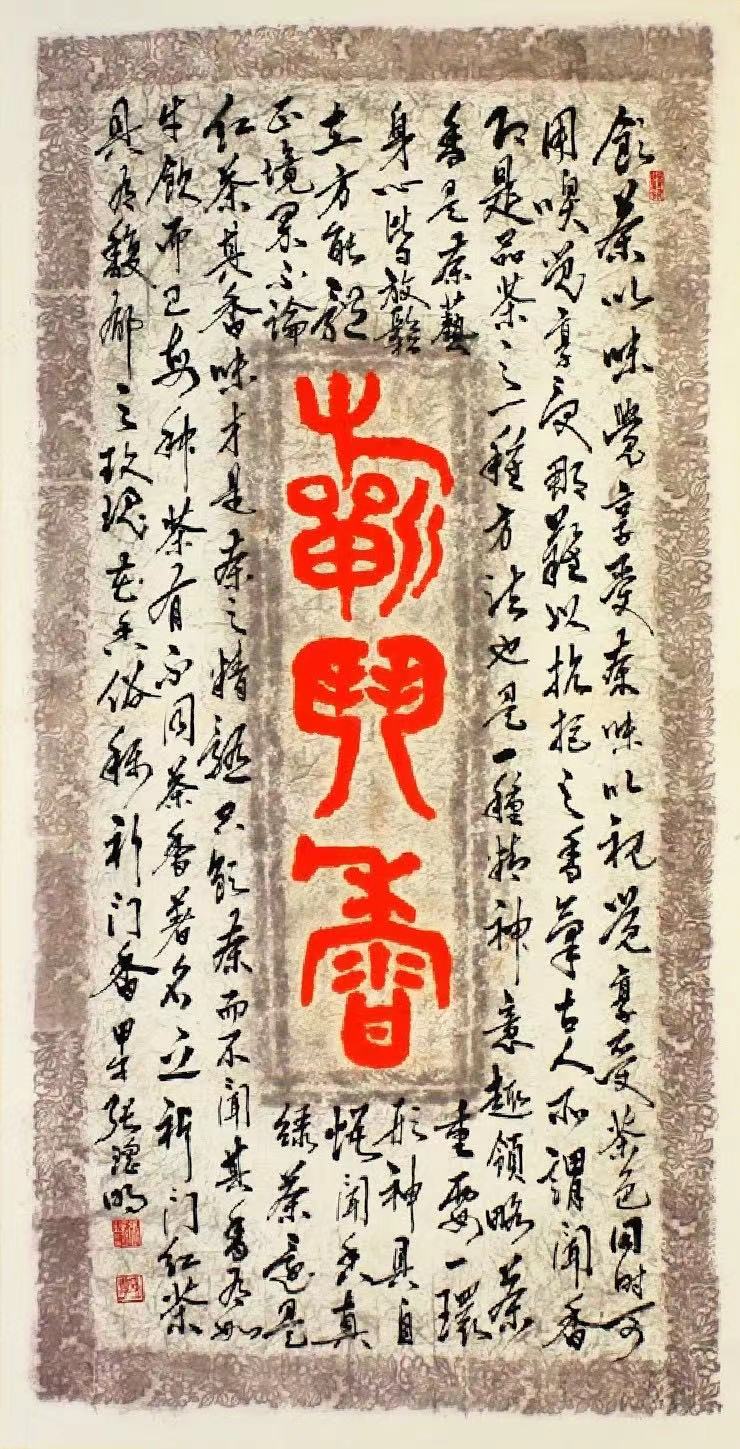 飲茶以味覺享受茶味以視覺享受茶色同時可
用嗅覺享受那難以抗拒之香氣古人所謂聞香
即是品茶之一種方法也是一種精神意趣領略茶
香是茶藝重要一環
身心皆放鬆形神具自
在方能體悟聞香真
正境界不論綠茶還是
红茶其香味才是茶之精髓只飲茶而不聞其香乃如
牛飲而已每种茶有不同茶香著名之祁门红茶
具有馥郁之玫瑰花香俗稱祁门香甲午張明
祁門香